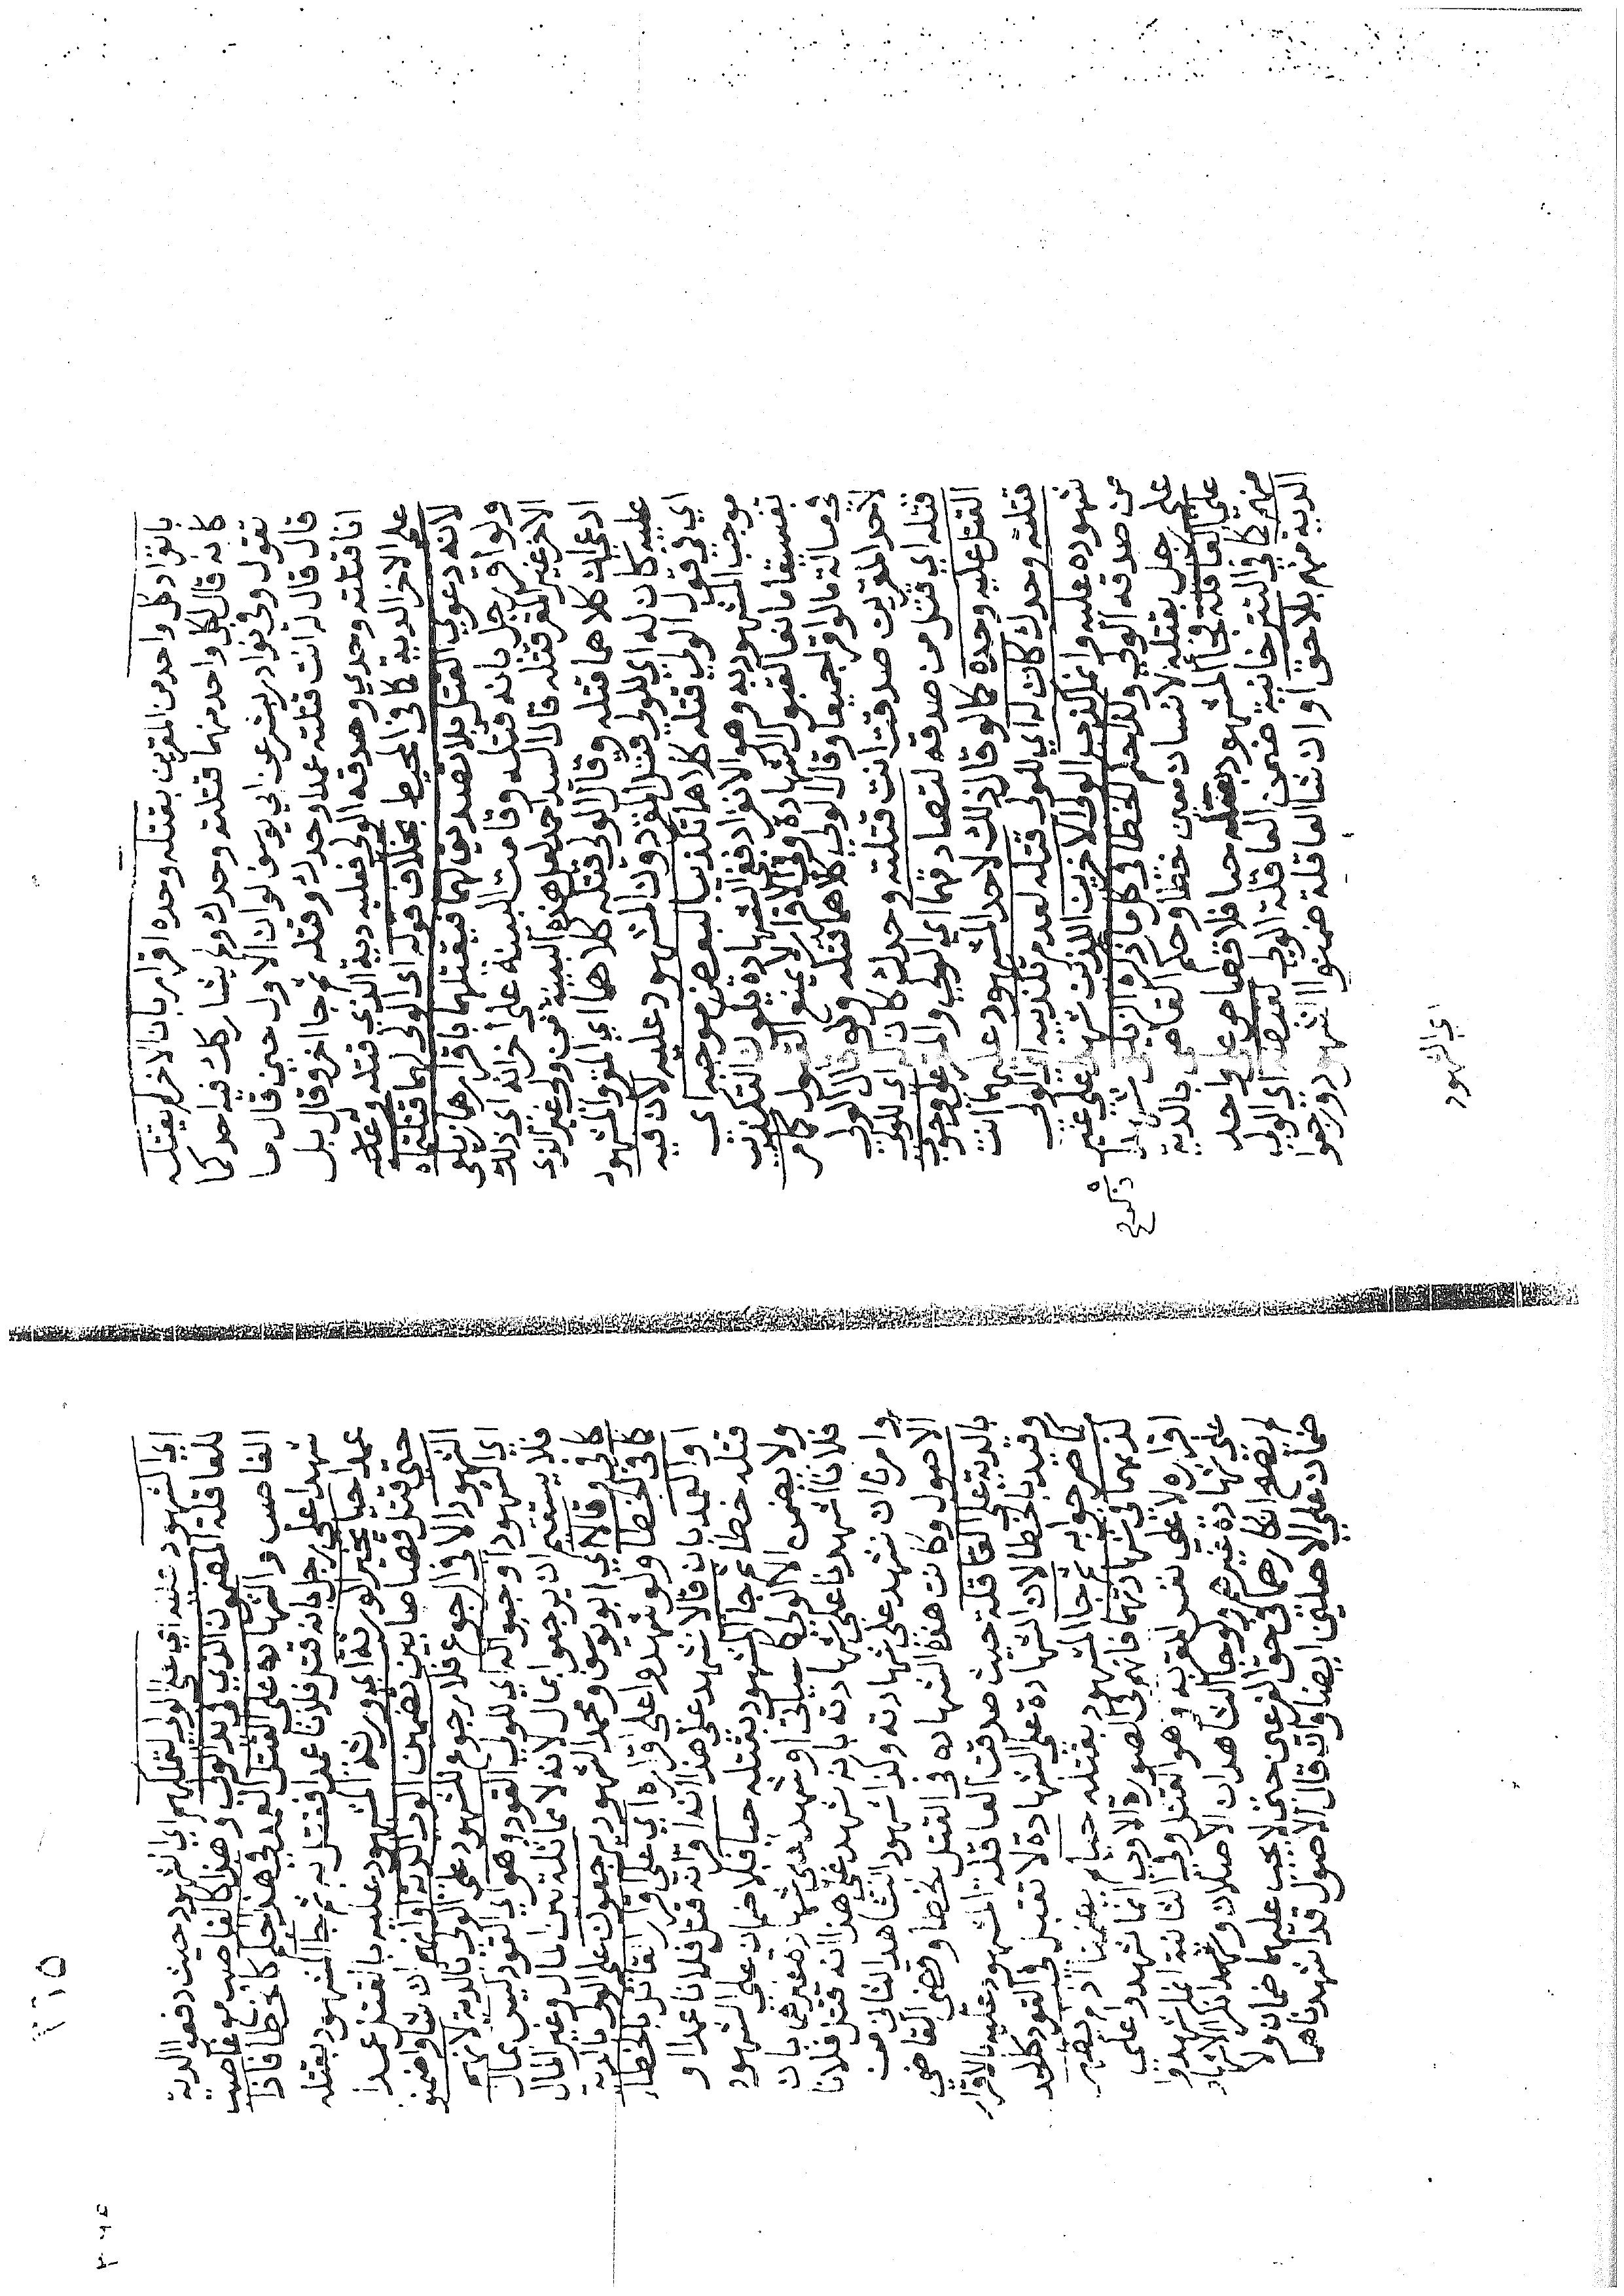 بانفراد كل واحد من المقرين بقتله وحده اقرار بان الاخر لم يقتله
كانه قال لكل واحد منهما قتلته وحدك ولم يشاركك فيه احد كما
تقول وفي نوادر بشر عن ابي يوسف لو ان الاول حين قال ما
قال قال له انت قتلته عمدا وحدك وقتله ثم جا اخر وقال بل
انا قتلته وحدي وصدقه الولي فعليه دية الذي قتله وعلى
على الاخر الدية كما في المحيط بخلاف قوله اي الولي لهما قتلتماه
لانه دعوي القتل بلا تصديق لهما فيقتلهما باقرارهما زيلعي
ولو اقر رجل بانه قتله وقامت البينة على اخر انه اي ذلك
الاخر غير المقر قتله قال السيد احمد لعل هذه البينة من ولي غير الذي
ادعى ان كلاهما قتله وقال الولي قتله كلاهما اي المقر والمشهود
عليه كان له اي للولي قتل المقر دون المشهود عليه لان فيه
اي في قول الولي قتله كلاهما تكذيبا لبعض موجبه اي
موجب المشهود به وهو الانفراد ففي الشهادة يكون التكذيب
تفسيقا مانعا لقبول الشهادة وفي الاقرار لا يمنع القبول كما مر
في مسالة ما لو اقر جميعا وقال الولي كلاهما قتله ولو قال الولي
لاحد المقرين صدقت انت قتلته وحدك كان له اي للولي
قتله اي قتل من صدقه لتصادقهما اي الولي والمقر على وجوب
القتل عليه وحده كما لو قال ذلك لاحد المشهود عليهما انت
قتلته وحدك كان له اي للولي قتله لعدم تكذيبه اي الولي
شهوده عليه وانما كذب الولي الاخرين الذين شهدوا على غير
من صدقه الولي وكذا حكم الخطا في كل ما ذكره الزيلعي شهدا
على رجل بقتله لانسان معين خطا وحكم القاضي بالدية
على العاقلة فجا المشهود بقتله حيا فلا قصاص على واحد
منهم كما في التترخانية ضمن العاقلة الولي لقبضه اي الولي
الدية منهم بلا حق او ان شا العاقلة ضمنوا الشهود ورجعوا
اي الشهود
اي الشهود عليه اي على الولي لتملكهم اي الشهود حيث دفعوا الدية
للعاقلة المضمون الذي في يد الولي وهذا كالغاصب مع غاصب
الغاصب والشهادة على القتل العمد في هذا حكم كالخطا فاذا
شهد على رجل بانه قتل فلانا عمدا فقتل به ثم جا المشهود بقتله
عمدا حيا تخير الورثة اي ورثة المشهود عليه بالقتل عمدا
حتى قتل قصاصا بين تضمين الولي الدية ولهم ان شاؤا ضمنوا
الشهود الا في الرجوع فلا رجوع للشهود على الولي بالدية لانهم
اي الشهود اوجبوا له اي للولي القود وهو اي القود ليس بمال
فلا يستقيم ان يرجعوا بمال لانه لا مماثلة بين المال وغير المال
كافي وقالا اي ابو يوسف ومحمد الشهود يرجعون على الولي بالدية
كما في الخطا ولو شهدوا على اقراره اي على اقرار القاتل بالخطا
او العمد بان قالا نشهد على هذا انه اقر انه قتل فلانا عمدا او
قتله خطا ثم جا المشهود بقتله حيا فلا ضمان على الشهود
ولا يضمن الا الولي كما سياتي او شهدا على شهادة غيرهما بان
فلانا اشهدنا على شهادته بانه شهد على هذا انه قتل فلانا
وامرنا ان نشهد على شهادته وكذا شهود الشاهد الثاني من
الاصول وكانت هذه الشهادة في القتل خطا وقضى القاضي
بالدية على العاقلة حيث صدقت العاقلة المشهود عليه بالاقرار
وقيد بالخطا لان الشهادة على الشهادة لا تقبل في القود كالحد
كما صرحوا به ثم جا المشهود بقتله حيا لم يضمنا اذ لم يظهر
كذبهما في شهادتهما فانهم في الصورة الاولى انما شهدوا على
اقراره لا على نفس المقر به وهو القتل وفي الثانية انما شهدوا
على شهادة غيرهم ولو جا الشاهدان الاصلان وشهدا انكر الاشهاد
لم يصح انكارهما في حق الفرعين حتى لا يجب عليهما ضمان ولا
ضمان على الاصلين ايضا وان قال الاصول قد اشهدناهما